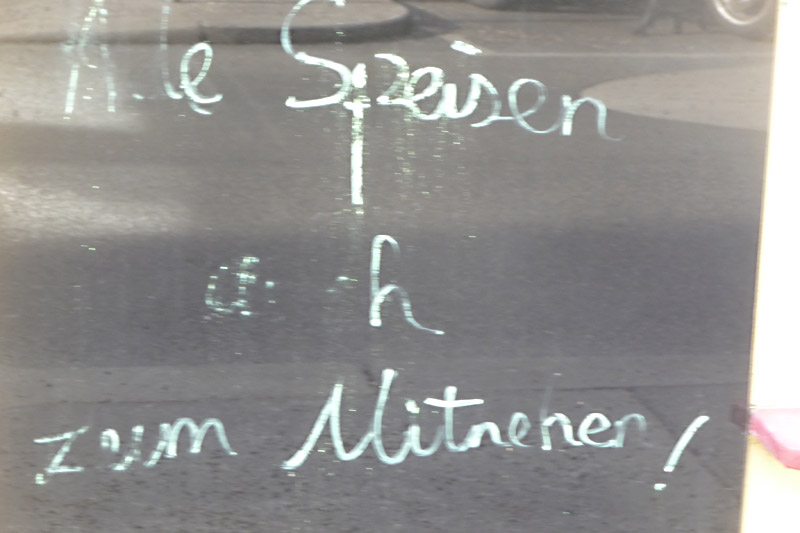 Alle Speisen
auch
zum Mitnehen!